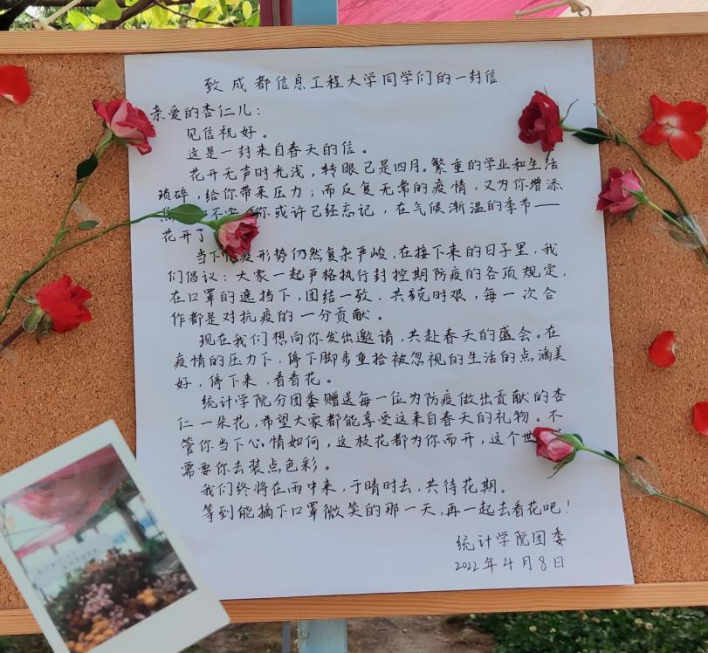 致成都信息工程大学同学们的一封信
亲爱的杏仁儿：
见信祝好。
这是一封来自春天的信。
花开无声时光浅，转眼已是四月。繁重的学业和生活
琐碎，给你带来压力；而反复无常的疫情，又为你增添
你或许已经忘记，在气候渐温的季节——
花开了
当下 疫形势仍然复杂严峻，在接下来的日子里，我
们倡议：大家一起严格执行封控期防疫的各项规定，
在口罩的遮挡下，团结一致、共克时艰，每一次合
作都是对抗疫的一分贡献。
现在我们想向你发出邀请，共赴春天的盛会。在
疫情的压力下，停下脚步重拾被忽视的生活的点滴美
好，停下来，看看花。
统计学院分团委赠送每一位为防疫做出贡献的杏
仁一朵花，希望大家都能享受这来自春天的礼物。不
管你当下心情如何，这枝花都为你而开，这个世
需要你去装点色彩。
我们终将在雨中来，于晴时去，共待花期。
等到能摘下口罩微笑的那一天，再一起去看花吧！
统计学院团委
2022年4月8日